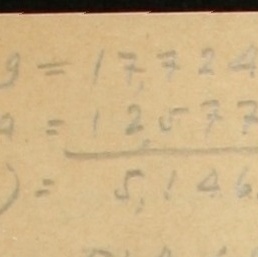 9 = 17,724
9 = 12,577
) = 5,146